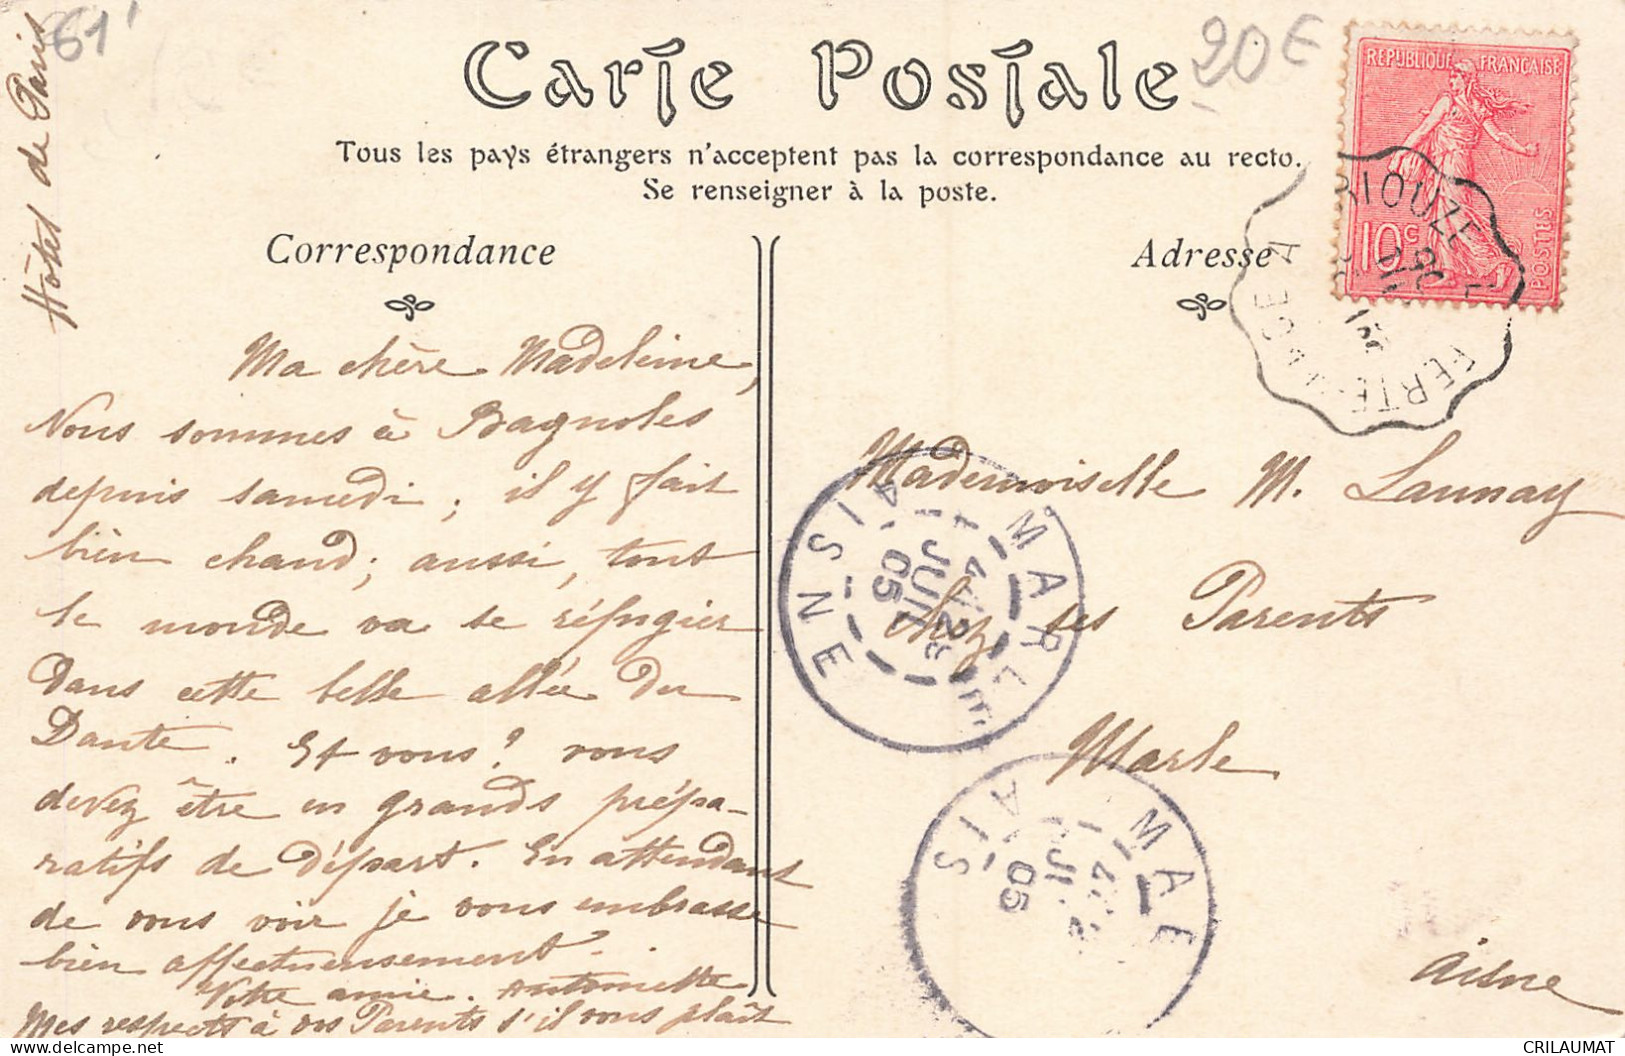 61'
Hôtel de Paris
Carte Postale
20€
Tous les pays étrangers n'acceptent pas la correspondance au recto.
Se renseigner à la poste.
Correspondance
Adresse
REPUBLIQUE FRANÇAISE
10c
POSTES
Ma chère Madeleine,
Nous sommes à Bagnoles
depuis samedi ; il y fait
bien chaud ; aussi, tout
le monde va se réfugier
dans cette belle allée du
Dante. Et vous ? vous
devez être en grands prépa-
ratifs de départ. En attendant
de vous voir je vous embrasse
bien affectueusement.
Votre amie. Antoinette
Mes respects à vos Parents s'il vous plaît
Mademoiselle M. Launay
chez ses Parents
Marle
Aisne
MARLE
AISNE
JUIL
05
MA E
AIS
05
FERTE-MACE A
CRILAUMAT